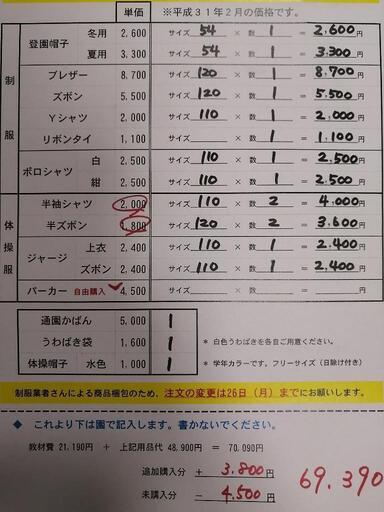 単価 ※平成31年2月の価格です。
登園帽子 冬用 2,600 サイズ 54 × 数 1 = 2.600円
夏用 3,300 サイズ 54 × 数 1 = 3.300円
制服 ブレザー 8,700 サイズ 120 × 数 1 = 8.700円
ズボン 5,500 サイズ 120 × 数 1 = 5.500円
Yシャツ 2,000 サイズ 110 × 数 1 = 2.000円
リボンタイ 1,100 サイズ × 数 1 = 1.100円
ポロシャツ 白 2,500 サイズ 110 × 数 1 = 2.500円
紺 2,500 サイズ 110 × 数 1 = 2.500円
体操服 半袖シャツ 2,000 サイズ 110 × 数 2 = 4.000円
半ズボン 1,800 サイズ 120 × 数 2 = 3.600円
ジャージ 上衣 2,400 サイズ 110 × 数 1 = 2.400円
ズボン 2,400 サイズ 110 × 数 1 = 2.400円
パーカー 自由購入 4,500 サイズ × 数 = 円
通園かばん 5,000 1
うわばき袋 1,600 1 * 白色うわばきを各自ご用意ください。
体操帽子 水色 1,000 1 * 学年カラーです。フリーサイズ（日除け付き）
制服業者さんによる商品梱包のため、注文の変更は26日（月）までにお願いします。
◆ これより下は園で記入します。書かないでください。
教材費 21,190円 + 上記用品代 48,900円 = 70,090円
追加購入分 + 3.800円
未購入分 − 4.500円
69.390